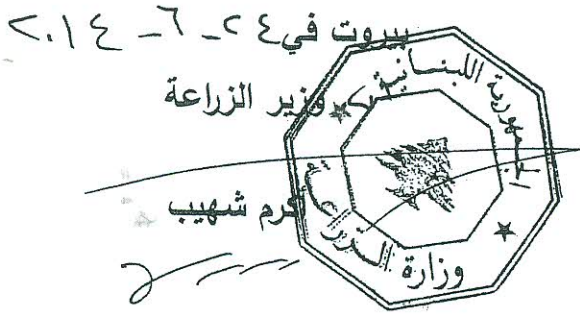 بيروت في ٢٤ - ٦ - ٢٠١٤
وزير الزراعة
أكرم شهيب
الجمهورية اللبنانية
وزارة الزراعة